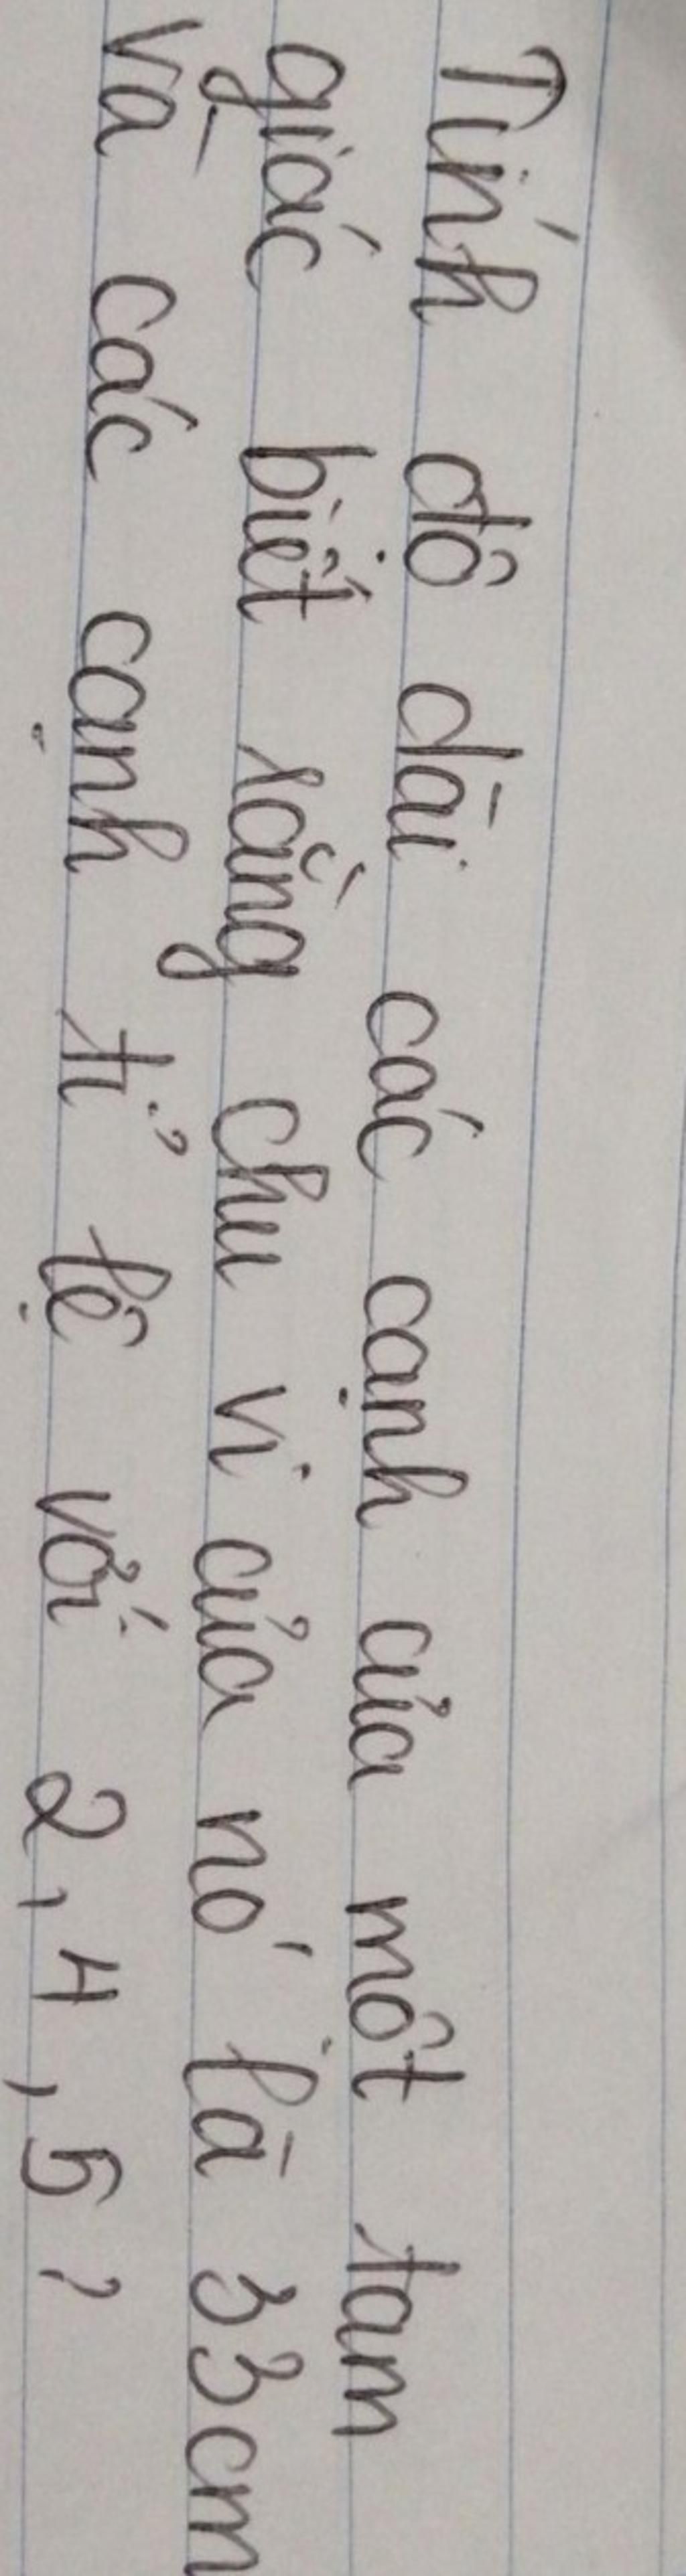 Tính độ dài các cạnh của một tam
giác biết rằng chu vi của nó là 33cm
và các cạnh tỉ lệ với 2,4,5?